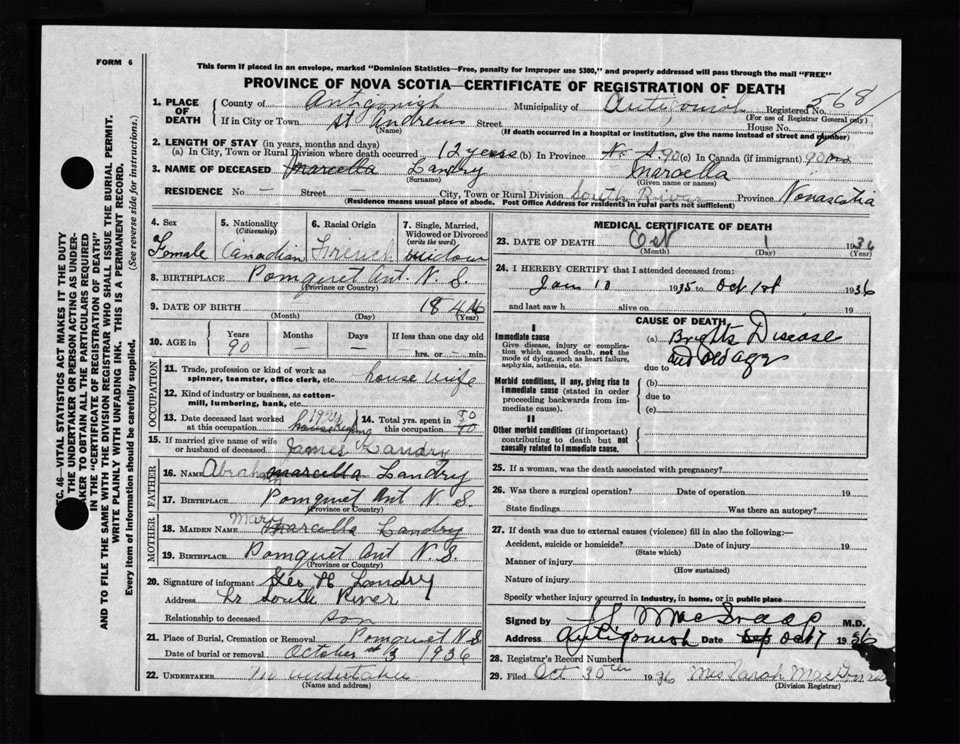 FORM 6
This form if placed in an envelope, marked "Dominion Statistics—Free, penalty for improper use $300," and properly addressed will pass through the mail "FREE"
PROVINCE OF NOVA SCOTIA—CERTIFICATE OF REGISTRATION OF DEATH
SEC. 46—VITAL STATISTICS ACT MAKES IT THE DUTY
OF THE UNDERTAKER OR PERSON ACTING AS UNDER-
TAKER TO OBTAIN ALL THE PARTICULARS REQUIRED
IN THE "CERTIFICATE OF REGISTRATION OF DEATH"
AND TO FILE THE SAME WITH THE DIVISION REGISTRAR WHO SHALL ISSUE THE BURIAL PERMIT.
WRITE PLAINLY WITH UNFADING INK. THIS IS A PERMANENT RECORD.
Every item of information should be carefully supplied. (See reverse side for instructions.)
1. PLACE OF DEATH County of Antigonish Municipality of Antigonish Registered No. 568
(For use of Registrar General only)
If in City or Town St Andrews Street House No.
(Name) (If death occurred in a hospital or institution, give the name instead of street and number)
2. LENGTH OF STAY (in years, months and days)
(a) In City, Town or Rural Division where death occurred 12 years (b) In Province N. S. 90 (c) In Canada (if immigrant) 90
3. NAME OF DECEASED Marcella Landry Marcella
(Surname) (Given name or names)
RESIDENCE No. — Street City, Town or Rural Division South River Province Novascotia
(Residence means usual place of abode. Post Office Address for residents in rural parts not sufficient)
4. Sex Female
5. Nationality (Citizenship) Canadian
6. Racial Origin French
7. Single, Married, Widowed or Divorced (write the word) widow
8. BIRTHPLACE Pomquet Ant. N. S.
(Province or Country)
9. DATE OF BIRTH 1846
(Month) (Day) (Year)
10. AGE in Years 90 Months — Days — If less than one day
— hrs. or — min.
OCCUPATION
11. Trade, profession or kind of work as spinner, teamster, office clerk, etc. house wife
12. Kind of industry or business, as cotton-mill, lumbering, bank, etc.
13. Date deceased last worked at this occupation housekeeping
14. Total yrs. spent in this occupation
15. If married give name of wife or husband of deceased James Landry
FATHER
16. NAME Abraham Marcella Landry
17. BIRTHPLACE Pomquet Ant N. S.
(Province or Country)
MOTHER
18. MAIDEN NAME Mary Marcella Landry
19. BIRTHPLACE Pomquet Ant N. S.
(Province or Country)
20. Signature of informant Geo H Landry
Address Lr South River
Relationship to deceased son
21. Place of Burial, Cremation or Removal Pomquet N.S
Date of burial or removal October 3 1936
22. UNDERTAKER No undertaker
(Name and address)
MEDICAL CERTIFICATE OF DEATH
23. DATE OF DEATH Oct 1 1936
(Month) (Day) (Year)
24. I HEREBY CERTIFY that I attended deceased from:
Jan 10 1935 to Oct 1st 1936
and last saw h alive on 19
CAUSE OF DEATH
I
Immediate cause
Give disease, injury or complication which caused death, not the mode of dying, such as heart failure, asphyxia, asthenia, etc.
(a) Brights Disease
and old age
due to
Morbid conditions, if any, giving rise to immediate cause (stated in order proceeding backwards from immediate cause).
(b)
due to
(c)
II
Other morbid conditions (if important) contributing to death but not causally related to immediate cause.
25. If a woman, was the death associated with pregnancy?
26. Was there a surgical operation? Date of operation 19
State findings Was there an autopsy?
27. If death was due to external causes (violence) fill in also the following:—
Accident, suicide or homicide? Date of injury 19
(State which)
Manner of injury
(How sustained)
Nature of injury
Specify whether injury occurred in Industry, in home, or in public place
Signed by M.D.
Address Antigonish Date Sep Oct 17 1936
28. Registrar's Record Number
29. Filed Oct 30th 1936 Mrs Sarah MacDonald
(Division Registrar)